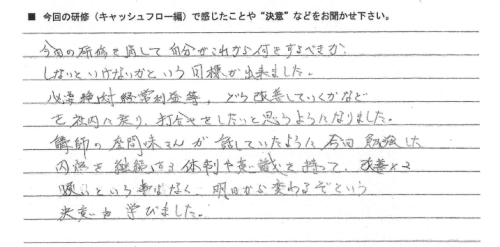 ■ 今回の研修（キャッシュフロー編）で感じたことや“決意”などをお聞かせ下さい。
今回の研修を通して自分がこれから何をするべきか、
しないといけないかという目標が出来ました。
必要絶対経常利益等、どう改善していくかなど
を社内に戻り、打合せをしたいと思うようになりました。
講師の 座間味さんが 話していたように 今回 勉強した
内容を 継続 する 体制や意識を 持って、改善××
という事はなく、明日から変わるぞという
決意も 学びました。